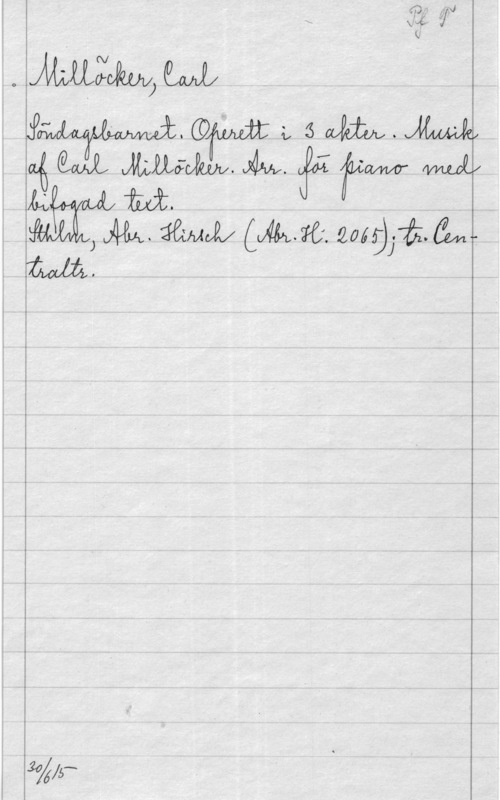 Pf T
Millöcker, Carl
Söndagsbarnet. Operett i 3 akter. Musik
af Carl Millöcker. Arr. för piano med
bifogad text.
Sthlm, Abr. Hirsch (Abr. H. 2065); tr. Cen-
traltr.
30/6 15